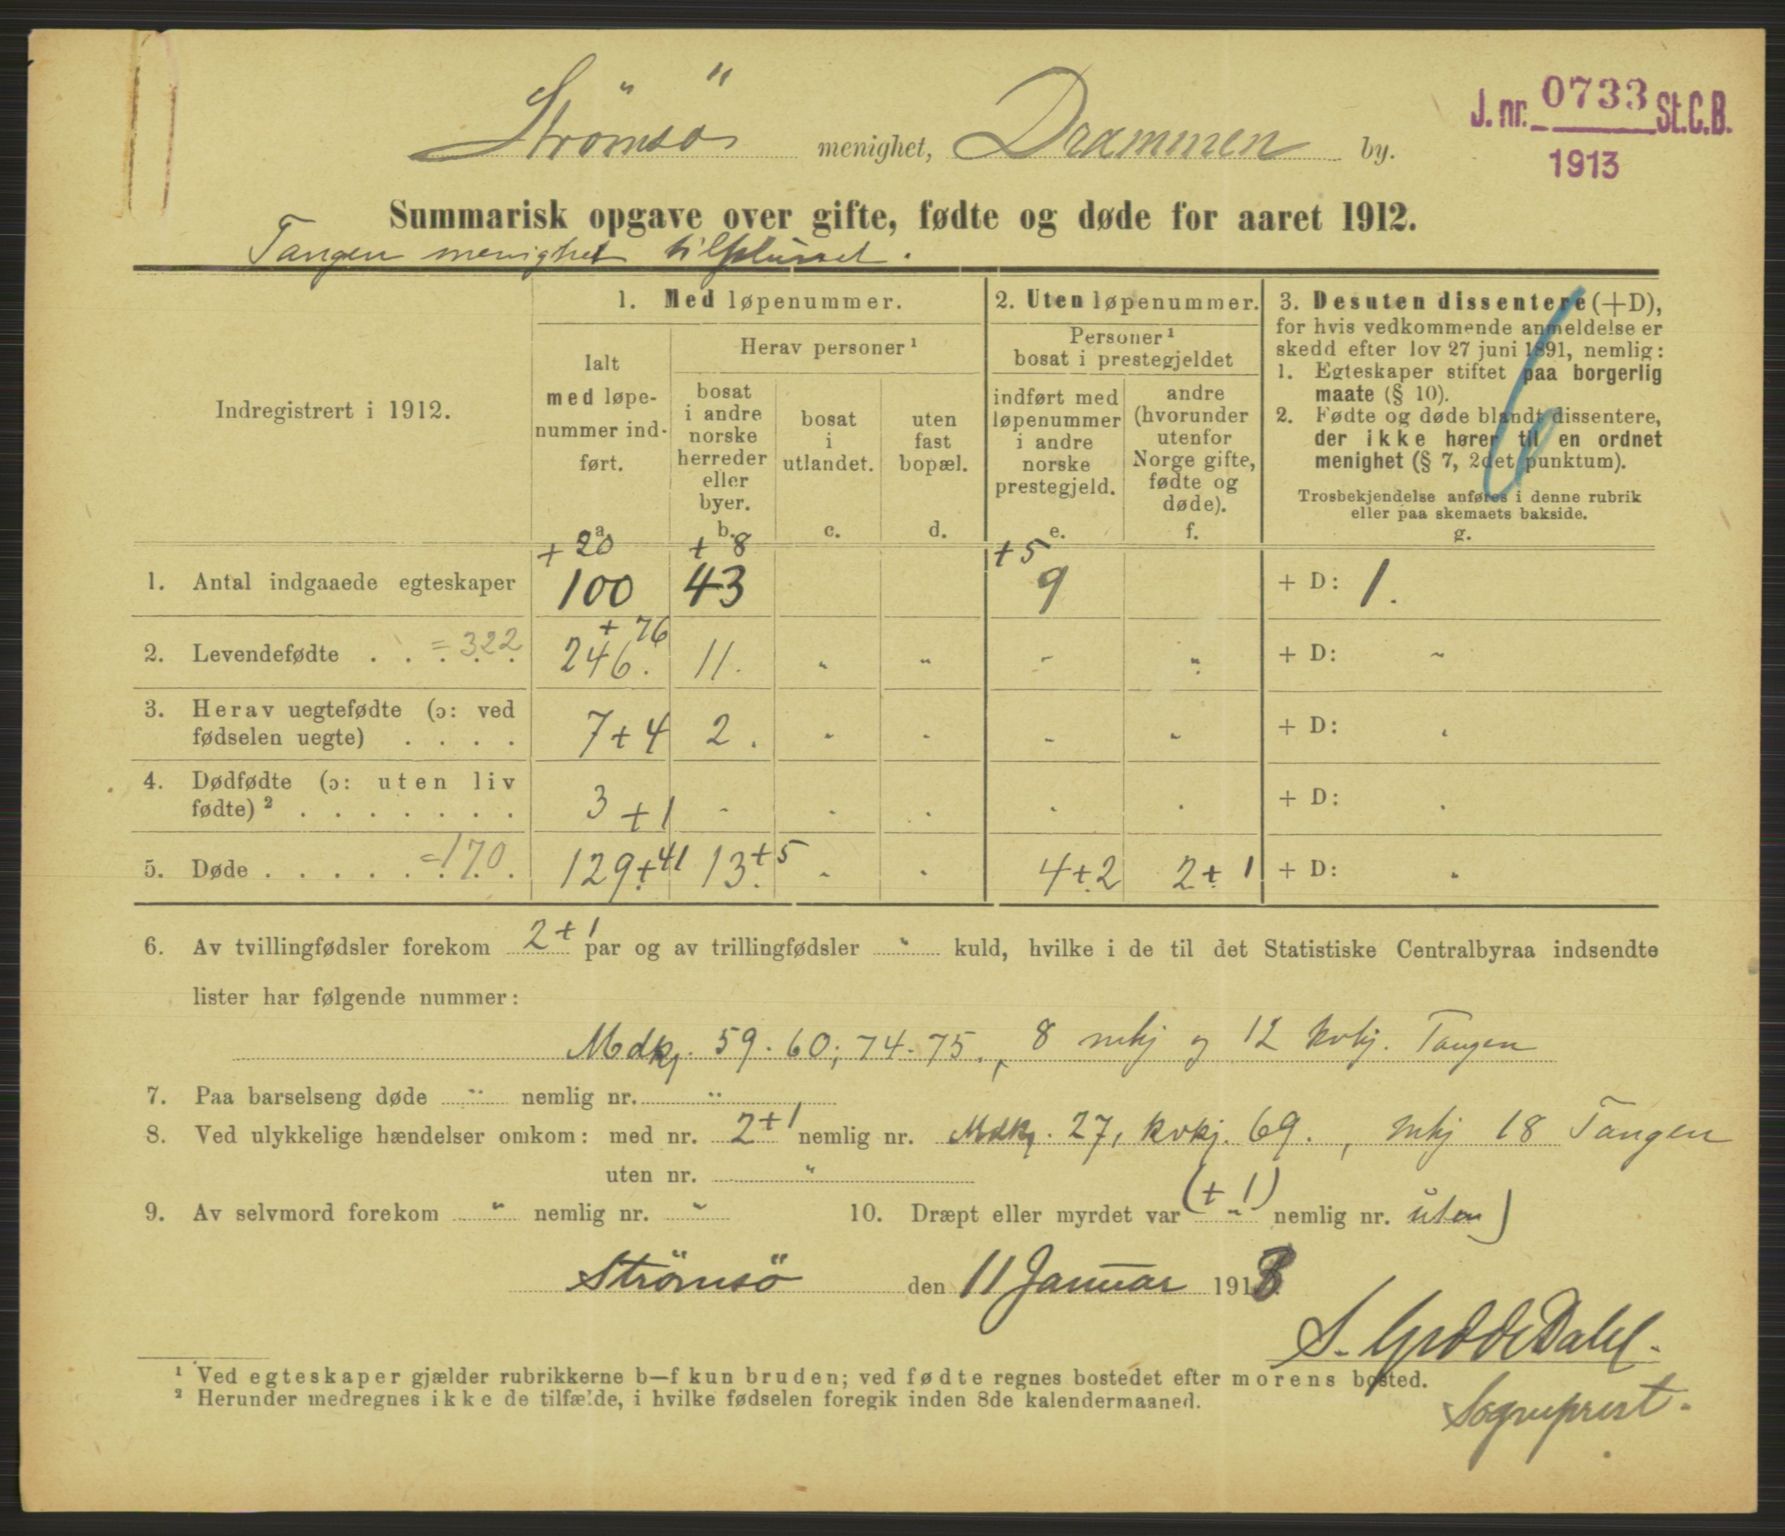 Strömsö menighet, Drammen by.
J. nr. 0733 St.C.B.
1913
Summarisk opgave over gifte, fødte og døde for aaret 1912.
Tangen menighet tilplusset.
Indregistrert i 1912.
1. Med løpenummer.
Ialt
med løpe-
nummer ind-
ført.
a.
Herav personer¹
bosat
i andre
norske
herreder
eller
byer.
b.
bosat
i
utlandet.
c.
uten
fast
bopæl.
d.
2. Uten løpenummer.
Personer¹
bosat i prestegjeldet
indført med
løpenummer
i andre
norske
prestegjeld.
e.
andre
(hvorunder
utenfor
Norge gifte,
fødte og
døde).
f.
3. Desuten dissentere (+D),
for hvis vedkommende anmeldelse er
skedd efter lov 27 juni 1891, nemlig:
1. Egteskaper stiftet paa borgerlig
maate (§ 10).
2. Fødte og døde blandt dissentere,
der ikke hører til en ordnet
menighet (§ 7, 2det punktum).
Trosbekjendelse anføres i denne rubrik
eller paa skemaets bakside.
g.
+ 20 + 8 + 5
1. Antal indgaaede egteskaper 100 43 9 + D: 1.
+ 76
2. Levendefødte . . . . . = 322 246. 11. " " " " + D: "
3. Herav uegtefødte (ɔ: ved
fødselen uegte) . . . . 7 + 4 2. " " " " + D: "
4. Dødfødte (ɔ: uten liv
fødte)² . . . . . . . 3 + 1 " " " " " + D: "
5. Døde . . . . . . . =170. 129 + 41 13 + 5 " " 4 + 2 2 + 1 + D: "
6. Av tvillingfødsler forekom 2 + 1 par og av trillingfødsler " kuld, hvilke i de til det Statistiske Centralbyraa indsendte
lister har følgende nummer:
Mdkj. 59. 60; 74. 75., 8 mkj og 12 kvkj. Tangen
7. Paa barselseng døde " nemlig nr. "
8. Ved ulykkelige hændelser omkom: med nr. 2 + 1 nemlig nr. Mdkj. 27, kvkj. 69., mkj 18 Tangen
uten nr. "
9. Av selvmord forekom " nemlig nr. " 10. Dræpt eller myrdet var (+ 1) " nemlig nr. uten)
Strömsö den 11 Januar 1913
S. Dahl.
Sogneprest.
¹ Ved egteskaper gjælder rubrikkerne b—f kun bruden; ved fødte regnes bostedet efter morens bosted.
² Herunder medregnes ikke de tilfælde, i hvilke fødselen foregik inden 8de kalendermaaned.